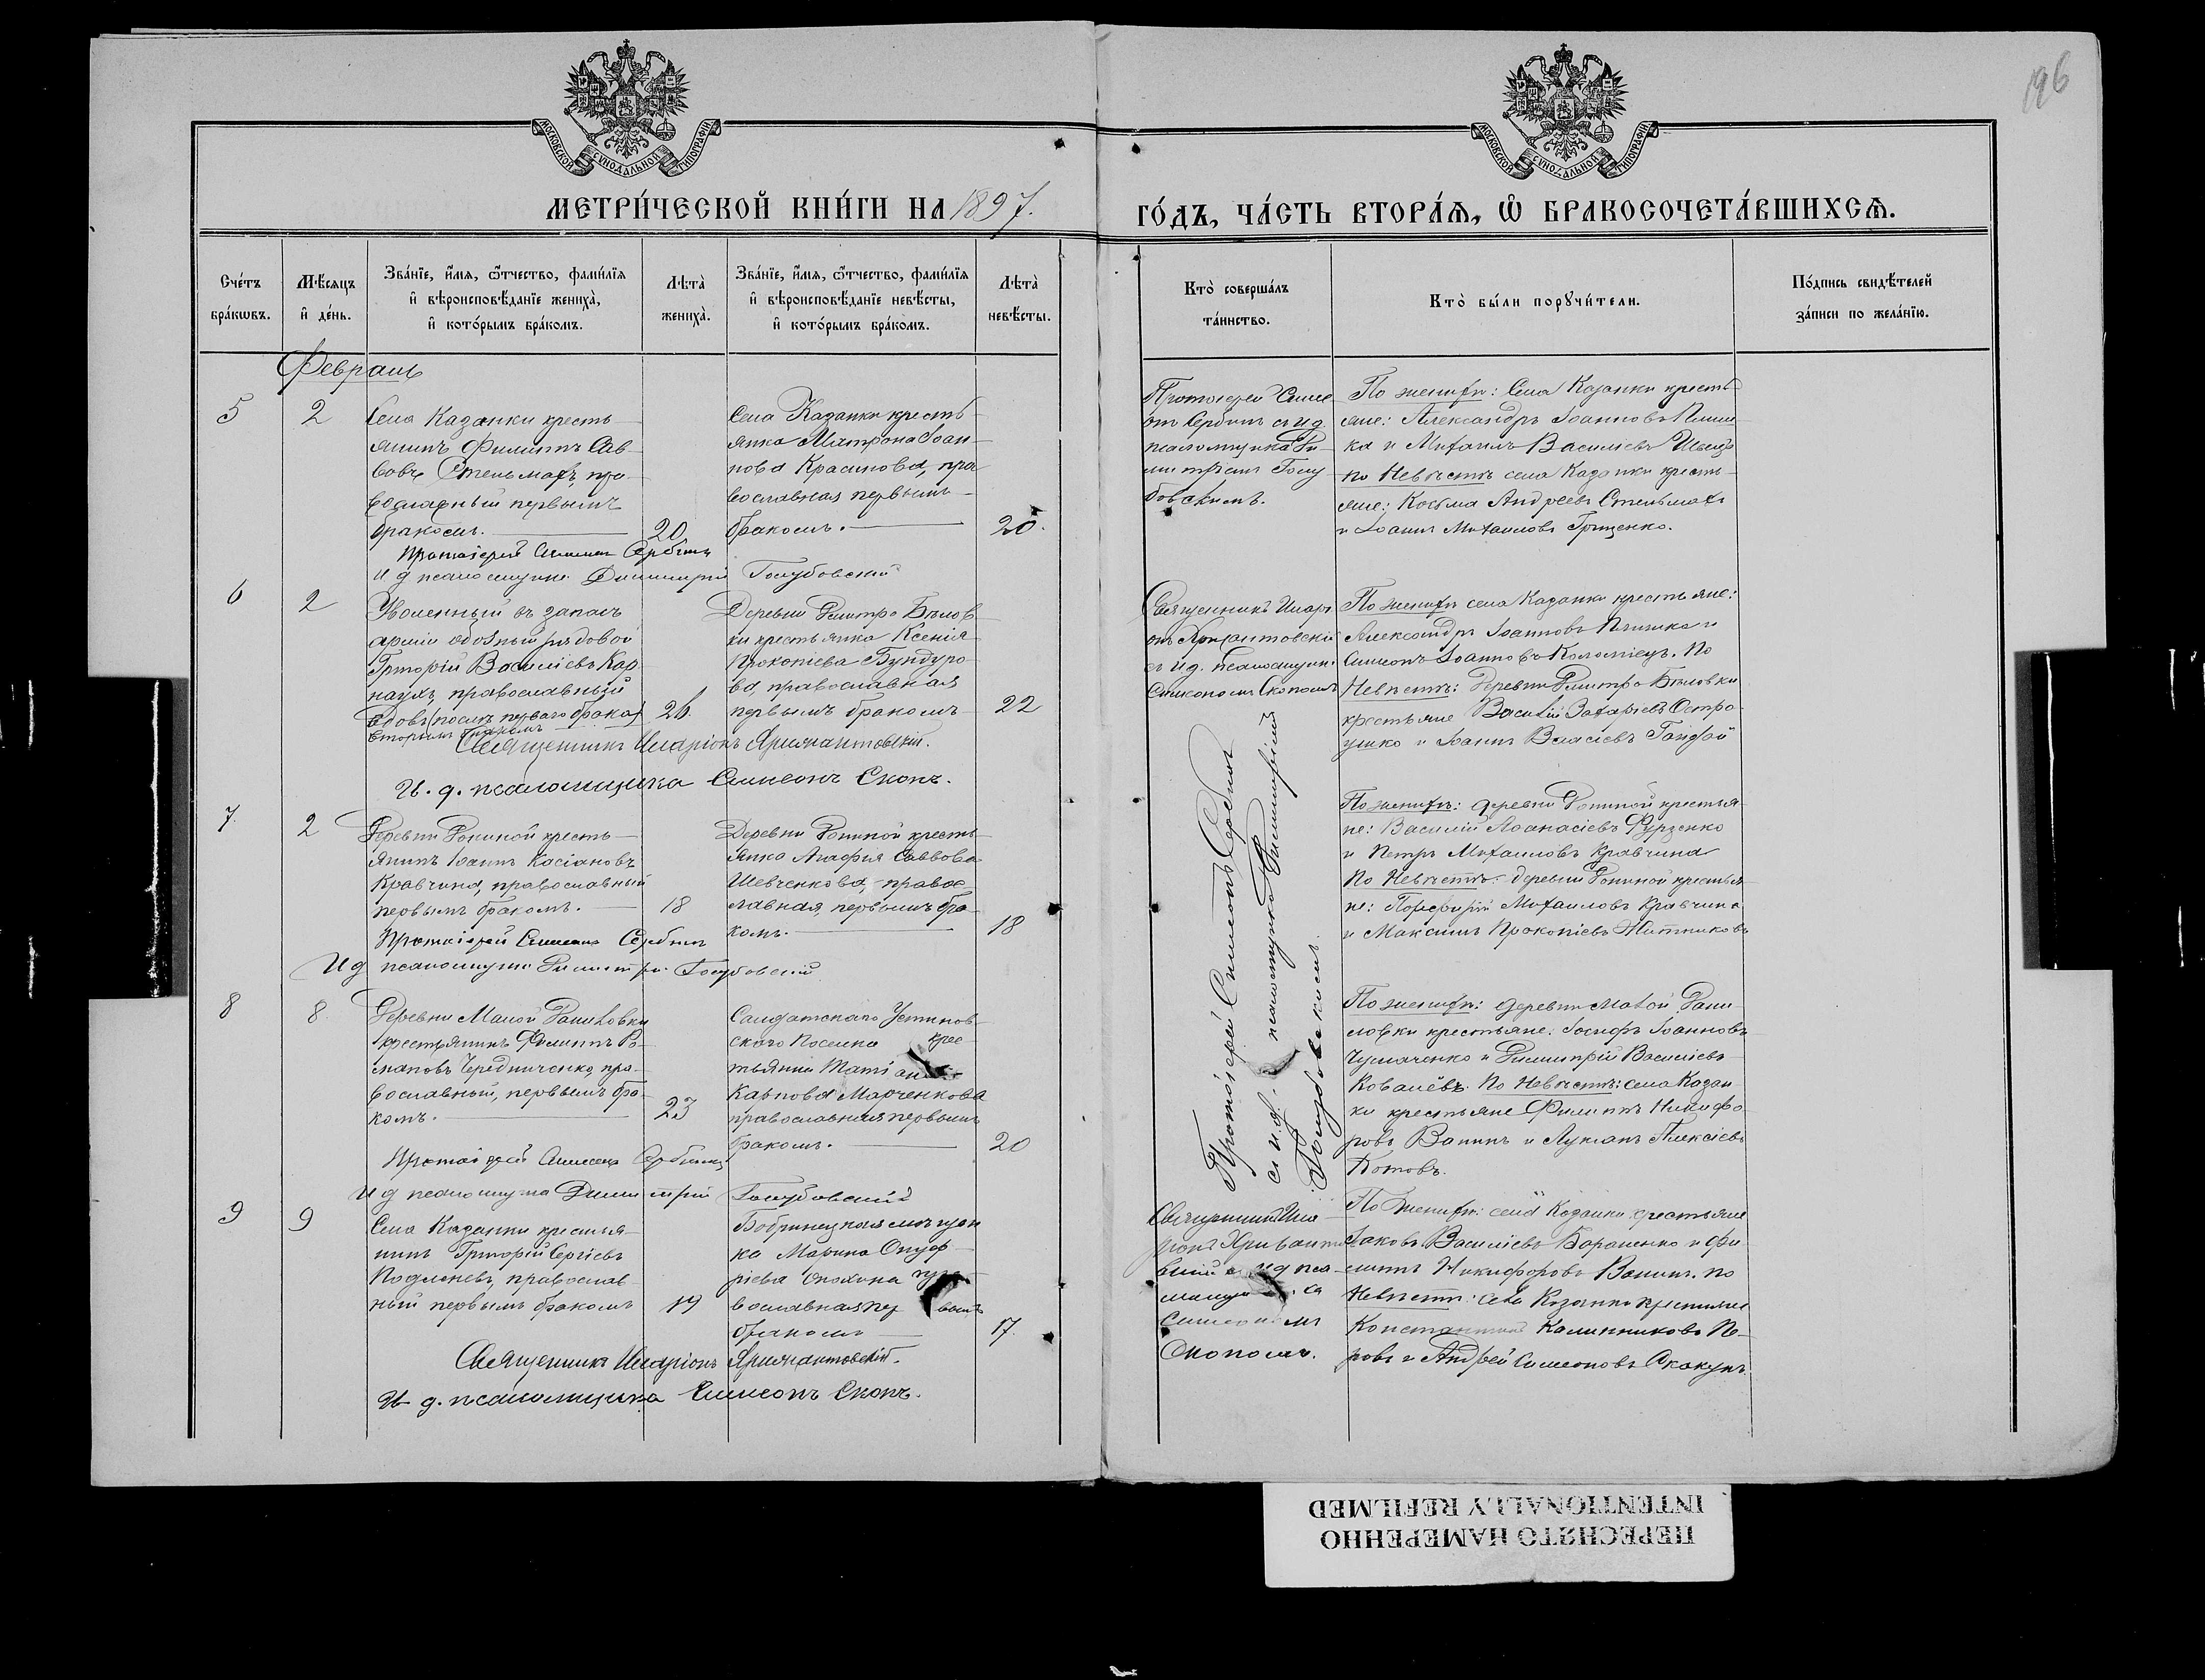 196
МОСКОВСКОЙ СѴНОДАЛЬНОЙ ТИПОГРАФІИ
МОСКОВСКОЙ СѴНОДАЛЬНОЙ ТИПОГРАФІИ
МЕТРИ́ЧЕСКОЙ КНИ́ГИ НА 1897.
ГО́ДЪ, ЧА́СТЬ ВТОРА́Ѧ, Ѽ БРАКОСОЧЕТА́ВШИХСѦ.
Сче́тъ бра́кѡвъ.
Мѣ́сяцъ и҆ де́нь.
Зва́нїе, и҆́мѧ, ѻ҆́тчество, фами́лїѧ
и҆ вѣроисповѣ́данїе жениха̀,
и҆ кото́рымъ бра́комъ.
Лѣта̀ жениха̀.
Зва́нїе, и҆́мѧ, ѻ҆́тчество, фами́лїѧ
и҆ вѣроисповѣ́данїе невѣ́сты,
и҆ кото́рымъ бра́комъ.
Лѣта̀ невѣ́сты.
Кто̀ соверша́лъ
та́инство.
Кто̀ бы́ли порꙋчи́тели.
По́дпись свидѣ́телей
за́писи по жела́нїю.
Февраль
5
2
Села Казанки кресть-
янинъ Филиппъ Сав-
вовъ Стельмахъ, пра-
вославный первымъ
бракомъ.
20
Села Казанки кресть-
янка Матрона Іоан-
нова Красикова, пра-
вославная первымъ
бракомъ.
20.
Протоіерей Симе-
онъ Сербинъ съ и.д.
псаломщика Ди-
митріемъ Голу-
бовскимъ.
По женихѣ: Села Казанки кресть-
яне: Александръ Іоанновъ
ка и Михаилъ Василіевъ Швецъ
по Невѣстѣ села Казанки кресть-
яне: Косьма Андреевъ Стельмахъ
и Іоаннъ Михаиловъ Грищенко.
Протоіерей Симеонъ Сербинъ
И д псаломщика Димитрій Голубовскій
6
2
Уволенный въ запасъ
арміи обозный рядовой
Григорій Василіевъ Кар-
наухъ православный
вдовъ (послѣ перваго брака)
вторымъ бракомъ
26.
Деревни Дмитро Бѣлов-
ки крестьянка Ксенія
Прокопіева Бундуро-
ва, православная
первымъ бракомъ
22
Священникъ Илари-
онъ
съ и д. псаломщик.
Симеономъ Скопомъ
По женихѣ села Казанки крестьяне:
Александръ Іоанновъ и
Симеонъ Іоанновъ Коломіецъ. По
Невѣстѣ: деревни Дмитро Бѣловки
крестьяне Василій Захаріевъ Остро-
ушко и Іоаннъ Власіевъ
Священникъ Иларіонъ
И. д. псаломщика Симеонъ Скопъ.
7.
2
Деревни кресть-
янинъ Іоаннъ Касіановъ
Кравчина, православный
первымъ бракомъ.
18
Деревни кресть-
янка Агафія Саввова
Шевченкова, правос-
лавная, первымъ бра-
комъ.
18
По женихѣ: деревни крестья-
не: Василій Аѳанасіевъ Фурзенко
и Петръ Михаиловъ Кравчина
По Невѣстѣ: деревни крестья-
не: Порфирій Михаиловъ Кравчина
и Максимъ Прокопіевъ Житниковъ
Протоіерей Симеонъ Сербинъ
И д псаломщика Димитрій Голубовскій
8
8.
Деревни Малой Даниловки
крестьянинъ Филиппъ Ро-
мановъ Чередниченко, пра-
вославный, первымъ бра-
комъ.
23
Солдатского Устинов-
ского поселка крес-
тьянка Татіана
Карпова Марченкова
православная первымъ
бракомъ.
20
Протоіерей Симеонъ Сербинъ
съ и.д. псаломщика Димитріемъ
Голубовскимъ.
По женихѣ: деревни Малой Дани-
ловки крестьяне: Іосифъ Іоанновъ
Чумаченко и Димитрій Василіевъ
Ковалёвъ. По Невѣстѣ: села Казан-
ки крестьяне Филиппъ Никифо-
ровъ Ванинъ и Лукіанъ Алексіевъ
Котовъ.
Протоіерей Симеонъ Сербинъ
И д псаломщика Димитрій Голубовскій
9
9
Села Казанки крестья-
нинъ Григорій Сергіевъ
православ-
ный первымъ бракомъ
19
Бобринецкая мѣщан-
ка Марина Онуф-
ріева пра-
вославная пер вымъ
бракомъ
17.
Священникъ Ила-
ріонъ
съ и д пса-
ломщика
Симеономъ
Скопомъ.
По Женихѣ: села Казанки крестьяне
Іаковъ Василіевъ Бараненко и Фи-
липпъ Никифоровъ Ванинъ. по
Невѣстѣ: села Казанки крестьяне
Константинъ Калинниковъ Пе-
ровъ и Андрей Симеоновъ
Священникъ Иларіонъ
И. д. псаломщика Симеонъ Скопъ.
ПЕРЕСНЯТО НАМЕРЕННО
INTENTIONALLY REFILMED